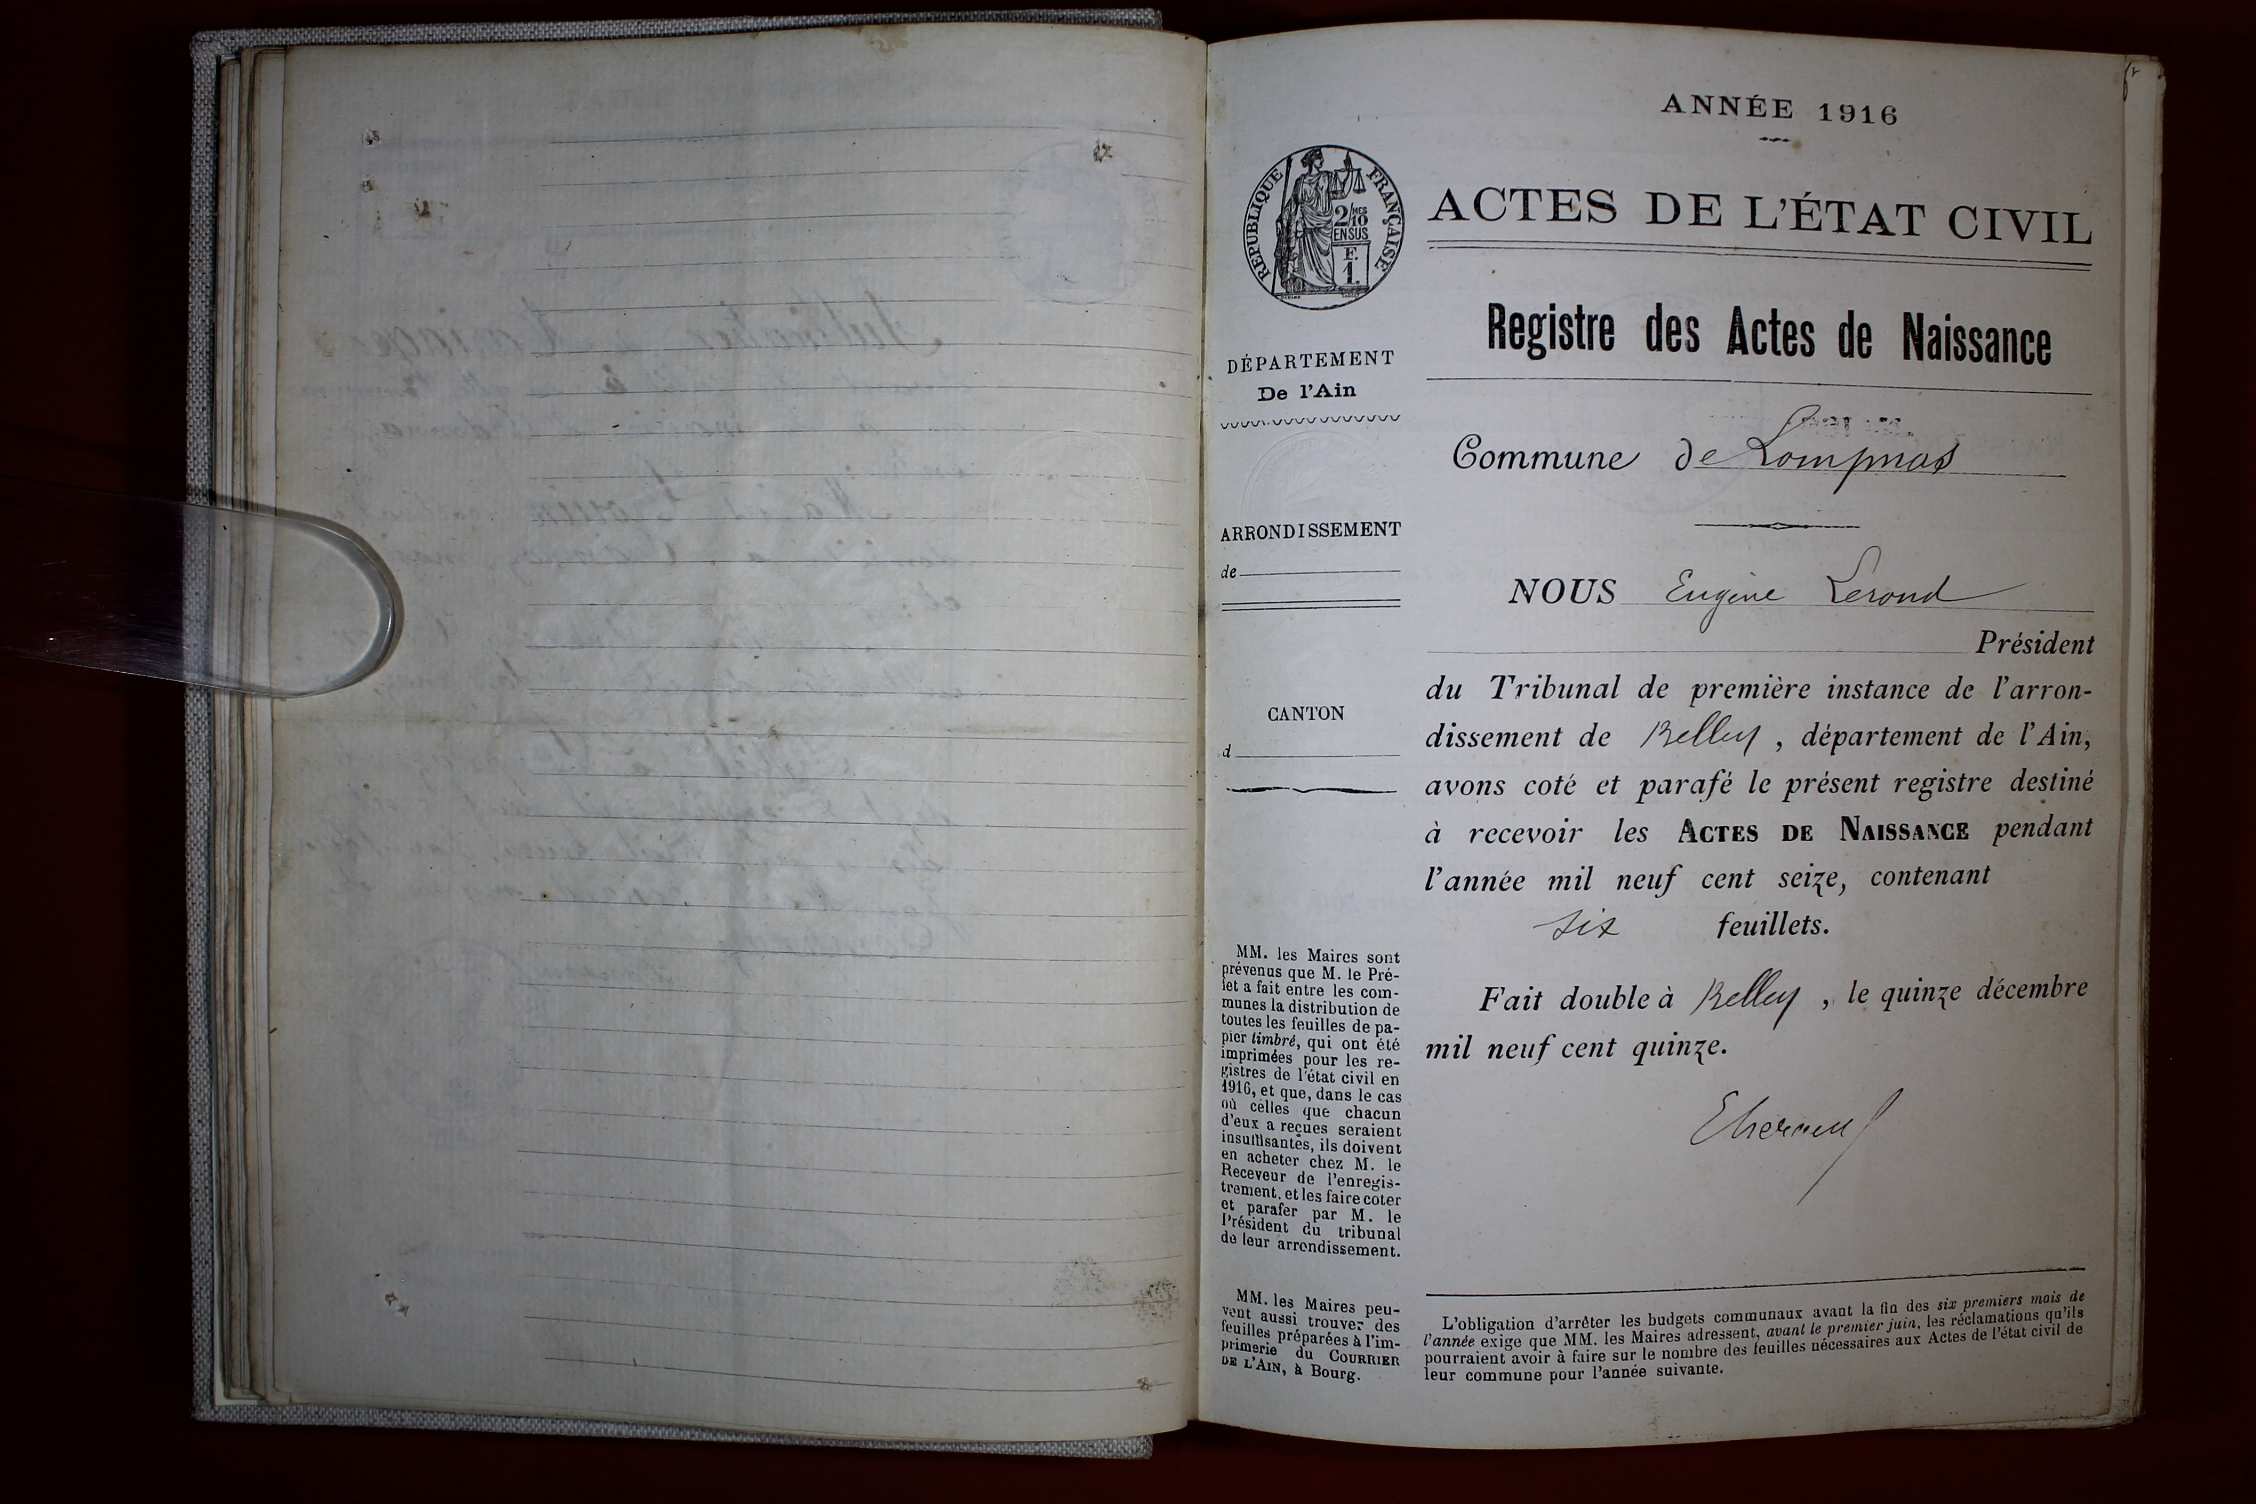 ANNÉE 1916
RÉPUBLIQUE FRANÇAISE
2/10 MES
EN SUS
F.
1.
ACTES DE L'ÉTAT CIVIL
Registre des Actes de Naissance
DÉPARTEMENT
De l'Ain
Commune de Lompnas
ARRONDISSEMENT
de
CANTON
d
NOUS Eugène Lerond
Président
du Tribunal de première instance de l'arron-
dissement de Belley, département de l'Ain,
avons coté et parafé le présent registre destiné
à recevoir les ACTES DE NAISSANCE pendant
l'année mil neuf cent seize, contenant
six feuillets.
Fait double à Belley, le quinze décembre
mil neuf cent quinze.
MM. les Maires sont
prévenus que M. le Pré-
fet a fait entre les com-
munes la distribution de
toutes les feuilles de pa-
pier timbré, qui ont été
imprimées pour les re-
gistres de l'état civil en
1916, et que, dans le cas
où celles que chacun
d'eux a reçues seraient
insuffisantes, ils doivent
en acheter chez M. le
Receveur de l'enregis-
trement, et les faire coter
et parafer par M. le
Président du tribunal
de leur arrondissement.
MM. les Maires peu-
vent aussi trouver des
feuilles préparées à l'im-
primerie du COURRIER
DE L'AIN, à Bourg.
L'obligation d'arrêter les budgets communaux avant la fin des six premiers mois de
l'année exige que MM. les Maires adressent, avant le premier juin, les réclamations qu'ils
pourraient avoir à faire sur le nombre des feuilles nécessaires aux Actes de l'état civil de
leur commune pour l'année suivante.